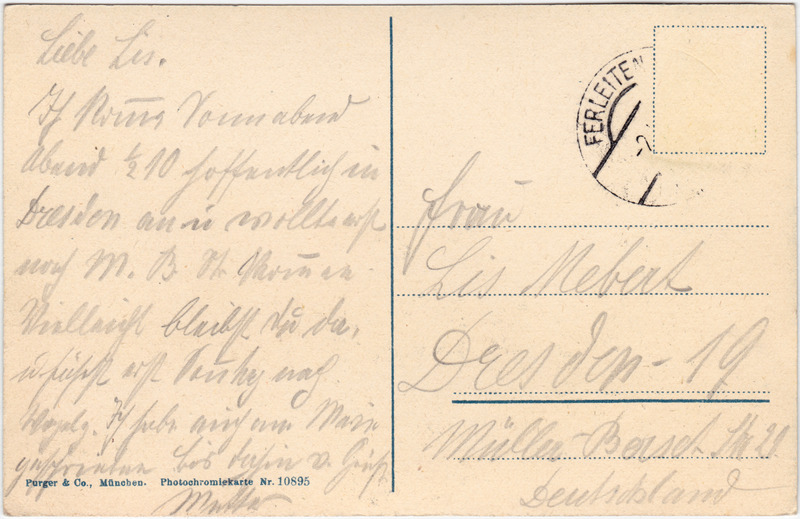 Liebe Lis.
Ich komme Sonnabend
Abend ½10 hoffentlich in
Dresden an u wollte erst
nach M. B. Str. kommen.
Vielleicht bleibst du da,
u fährst erst Sonntag nach
Ich habe auch an
geschrieben bis dahin v. Grüße
Mutter
Purger & Co., München. Photochromiekarte Nr. 10895
FERLEITEN
Frau
Lis Mebert
Dresden-19
Müller-Berset Str 20
Deutschland